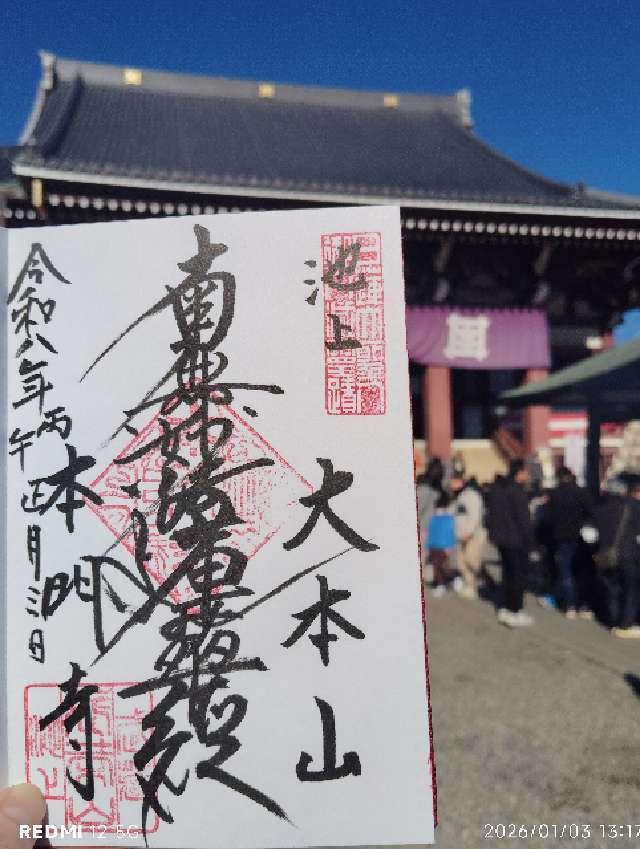 池上
大本山
南無妙法蓮華經
本門寺
令和八年丙午正月三日
REDMI 12 5G
2026/01/03 13:17